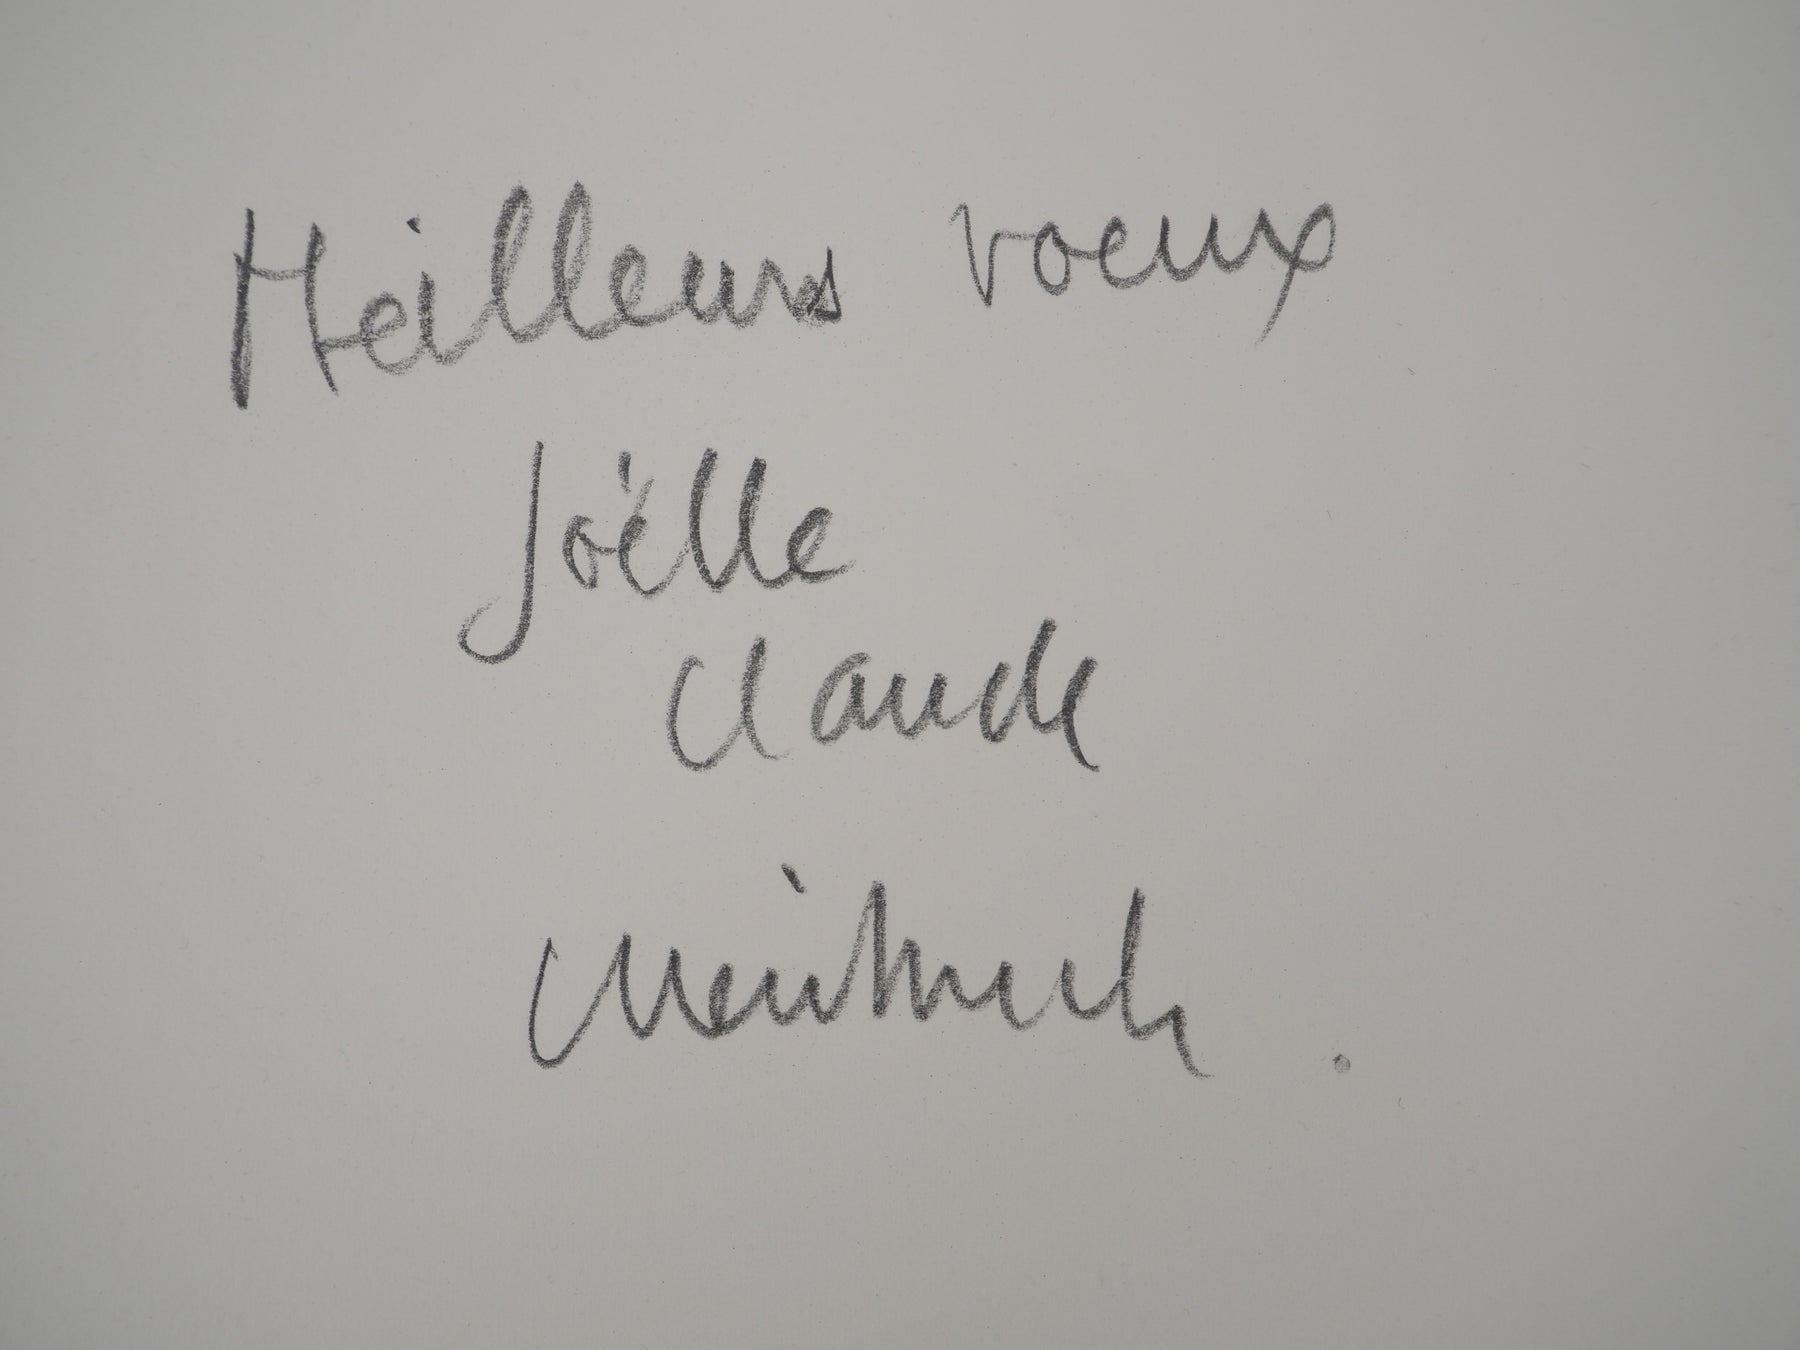 Meilleurs voeux
Joëlle
Claude